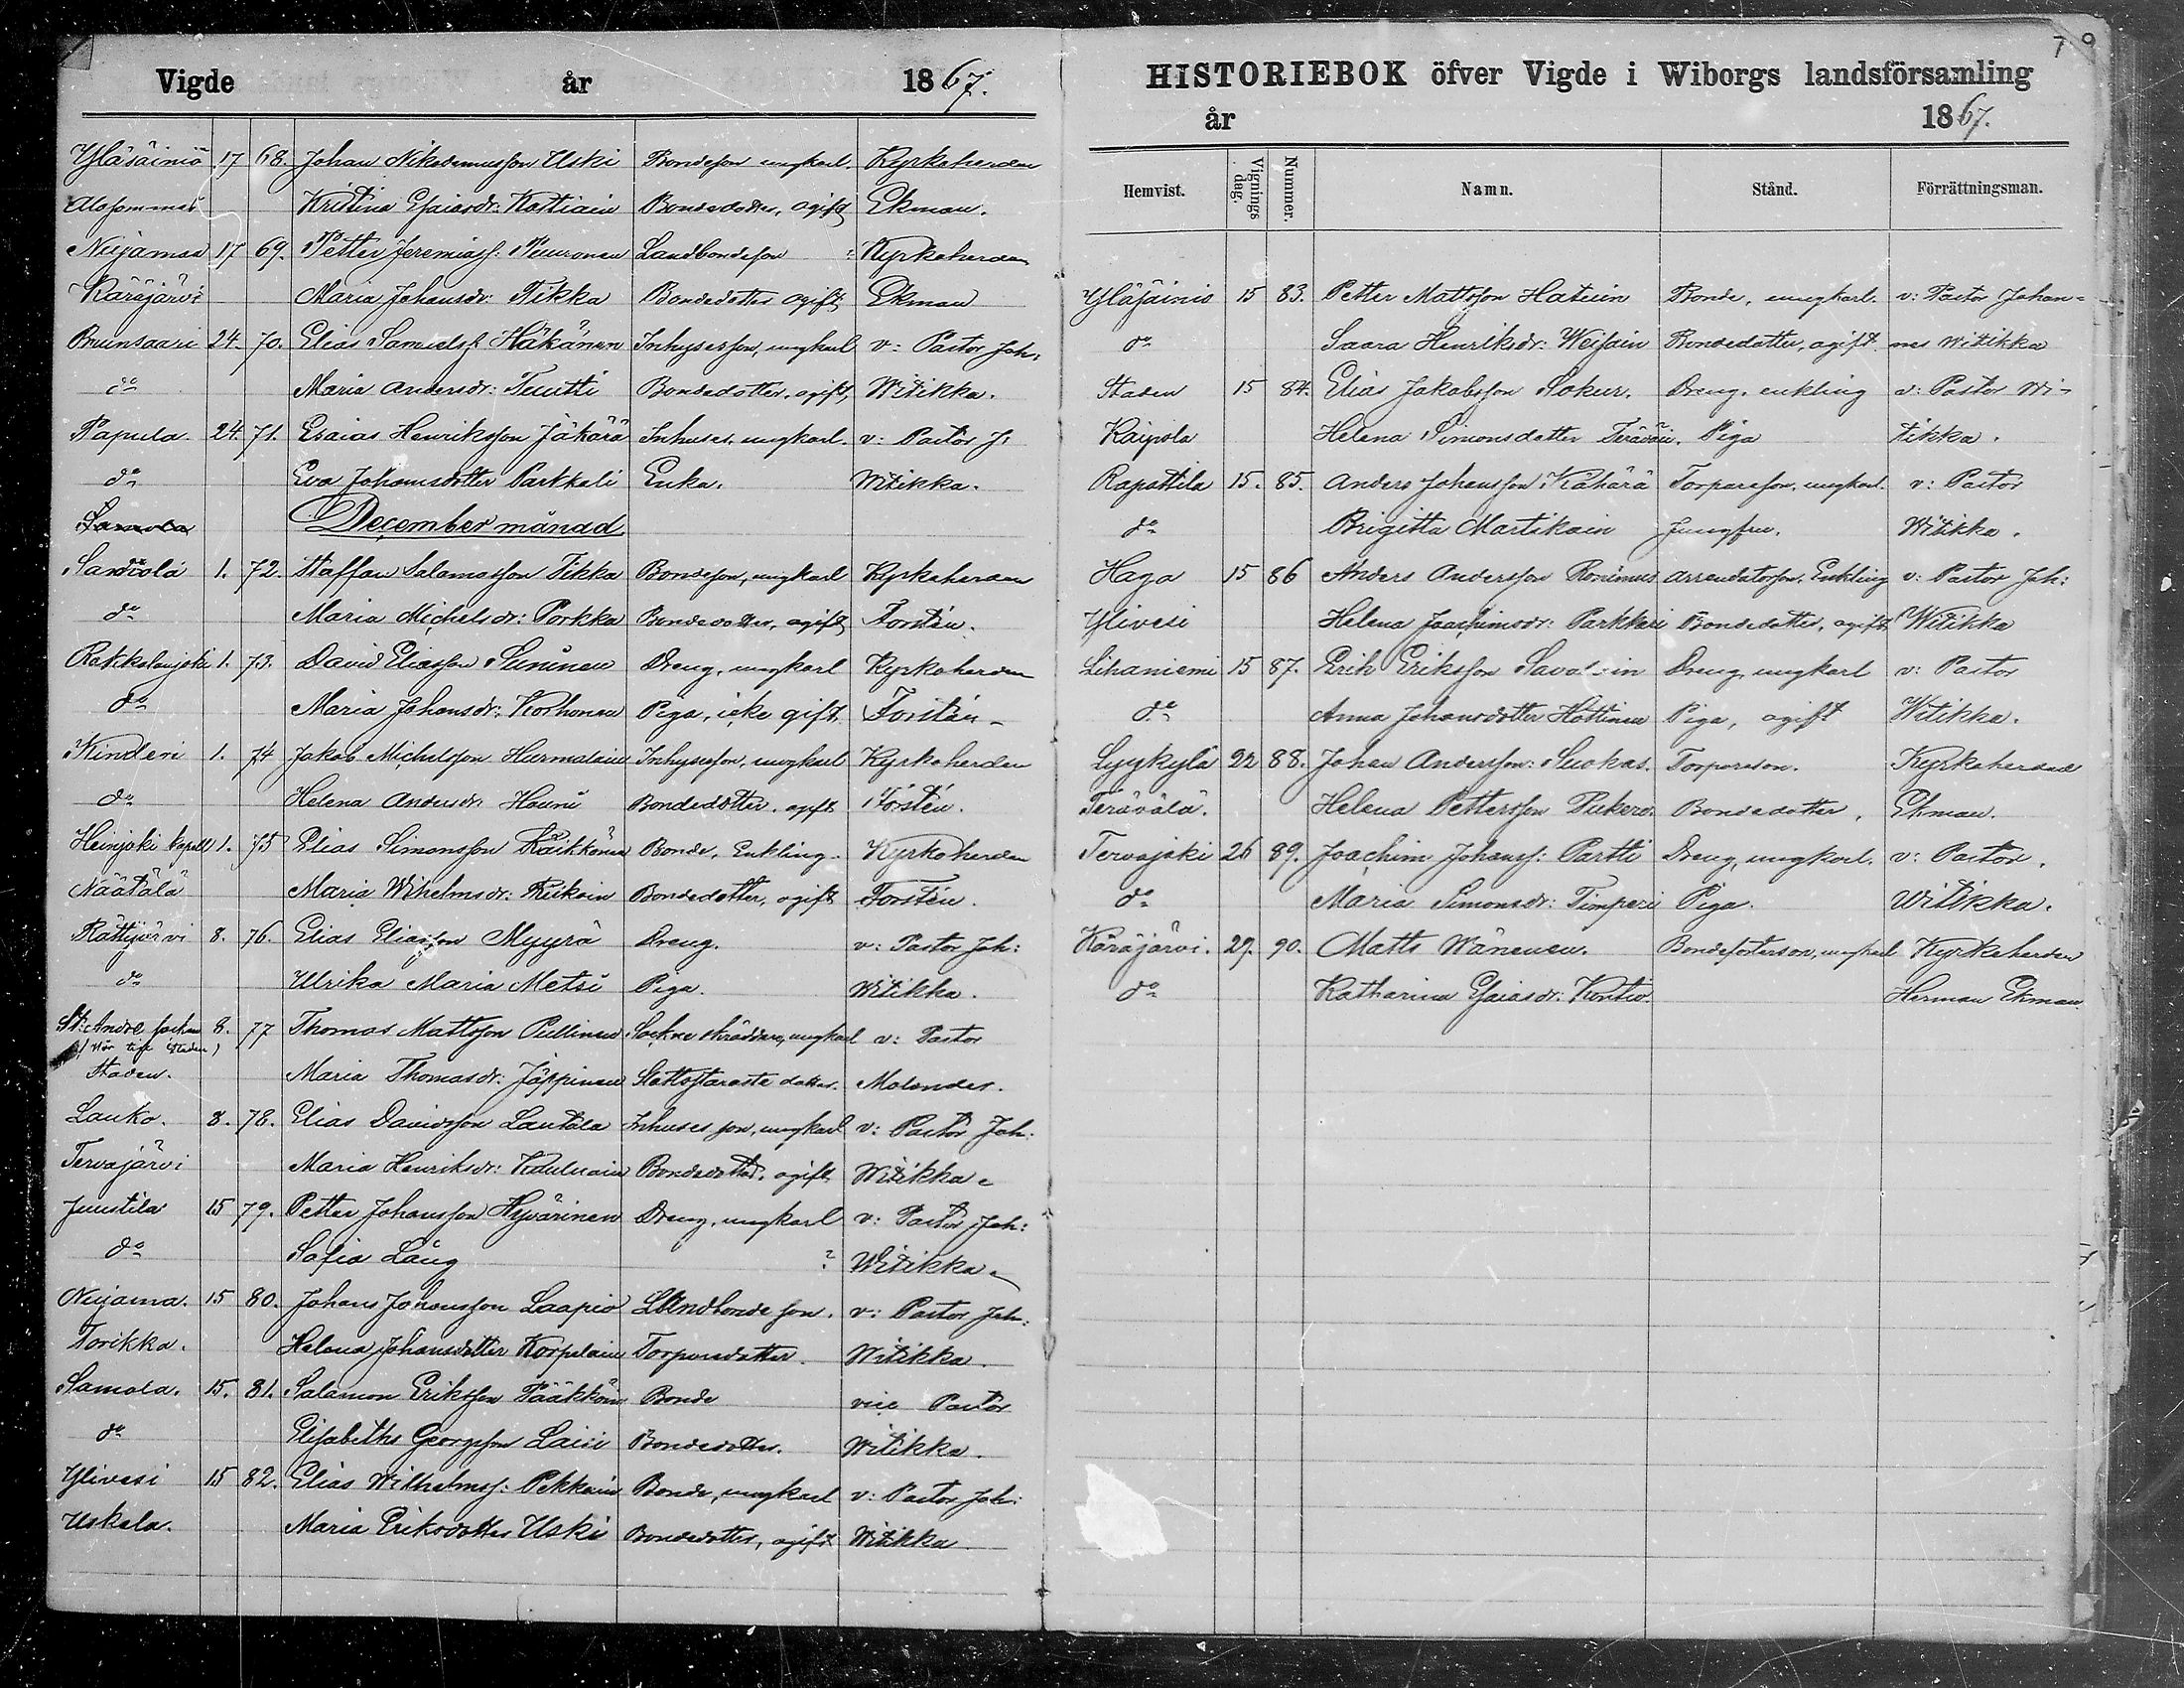 Vigde år 1867.
Yläsäiniö 17 68. Johan Nikodemusson Uski Bondeson ungkarl. Kyrkoherden
Alasommee Kristina Esaiasdr: Kattiain Bondedotter, ogift Ekman.
Nuijamaa 17 69. Petter Jeremiass: Puuronen Landbondeson Kyrkoherden
Käräjärvi Maria Johansdr: Pikka Bondedotter ogift Ekman
Bruunsaari 24. 70. Elias Samuels: Häkänen Inhysesson, ungkarl v: Pastor Joh:
do Maria Andersdr: Tuutti Bondedotter, ogift, Witikka.
Papula 24. 71. Esaias Henriksson Jäkärä Inhyses, ungkarl. v: Pastor J:
do Eva Johansdotter Parkkali Enka. Witikka.
Samola December månad
Samola 1. 72. Staffan Salamosson Tikka Bondeson, ungkarl Kyrkoherden
do Maria Michelsdr: Porkka Bondedotter, ogift Forstén.
Rakkolanjoki 1. 73. David Eliasson Suninen Dreng, ungkarl Kyrkoherden
do Maria Johansdr: Korhonen Piga, icke gift. Forstén
Kinteri 1. 74 Jakob Michelsson Harmalain Inhysesson, ungkarl Kyrkoherden
do Helena Andersdr Hauru Bondedotter, ogift Forstén.
Heinjoki kapell 1. 75 Elias Simonsson Räikkönen Bonde, Enkling. Kyrkoherden
Näätälä Maria Wilhelmsdr: Reikain Bondedotter, ogift Forstén.
Rättijärvi 8. 76. Elias Eliasson Myyrä Dreng. v: Pastor Joh:
do Ulrika Maria Metsi Piga. Witikka.
St: Andre socken 8. 77 Thomas Mattsson Pullinen Sockne skräddare, ungkarl v: Pastor
Staden)
Staden. Maria Thomasdr: Jäppinen dotter. Molander.
Lauko. 8. 78. Elias Davidsson Lautala Inhyses son, ungkarl v: Pastor Joh:
Tervajärvi Maria Henriksdr: Kaulnain Bondedotter. ogift Witikka.
Juustila 15 79. Petter Johansson Hyvärinen Dreng, ungkarl v: Pastor Joh:
do Sofia Lång ? Witikka.
Nuijama. 15 80. Johans Johansson Laapio Landbonde son. v: Pastor Joh:
Torikka. Helena Johansdotter Korpelain Torparedotter. Witikka.
Samola. 15. 81. Salamon Eriksson Pääkkön Bonde vice Pastor
do Elisabetha Georgsson Laiii Bondedotter. Witikka.
Ylivesi 15 82. Elias Wilhelmss: Pekkain Bonde, ungkarl v: Pastor Joh:
Uskela. Maria Eriksdotter Uski Bondedotter, ogift Witikka
HISTORIEBOK öfver Vigde i Wiborgs landsförsamling
år 1867.
Hemvist. Vigningsdag. Nummer. Namn. Stånd. Förrättningsman.
Yläsäinio 15 83. Petter Mattsson Hatuin Bonde, ungkarl. v: Pastor Johan=
do Saara Henriksdr: Weisain Bondedotter, ogift. nes Witikka
Staden 15 84. Elias Jakobsson Sokur. Dreng, enkling v: Pastor Wi-
Kaipola Helena Simonsdotter Teräväi. Piga tikka.
Rapattila 15. 85. Anders Johansson Kähärä Torpareson, ungkarl. v: Pastor
do Brigitta Martikain Jungfru. Witikka.
Haga 15 86 Anders Andersson Ronimus arrendatorson, Enkling v: Pastor Joh:
Ylivesi Helena Joachimsdr: Parkkari Bondedotter, ogift Witikka
Lihaniemi 15 87. Erik Eriksson Savolain Dreng, ungkarl v: Pastor
do Anna Johansdotter Hottinen Piga, ogift Witikka.
Lyykylä 22 88. Johan Andersson: Suokas. Torpareson. Kyrkoherden
Terävälä. Helena Pettersson Pukero. Bondedotter, Ekman.
Tervajoki 26 89. Joachim Johanss: Partti Dreng, ungkarl. v: Pastor.
do Maria Simonsdr: Timperi Piga. Witikka.
Käräjärvi. 29. 90. Matts Wänenen. Bondefosterson, ungkarl Kyrkoherden
do Katharina Esaiasdr: Kontio. Herman Ekman